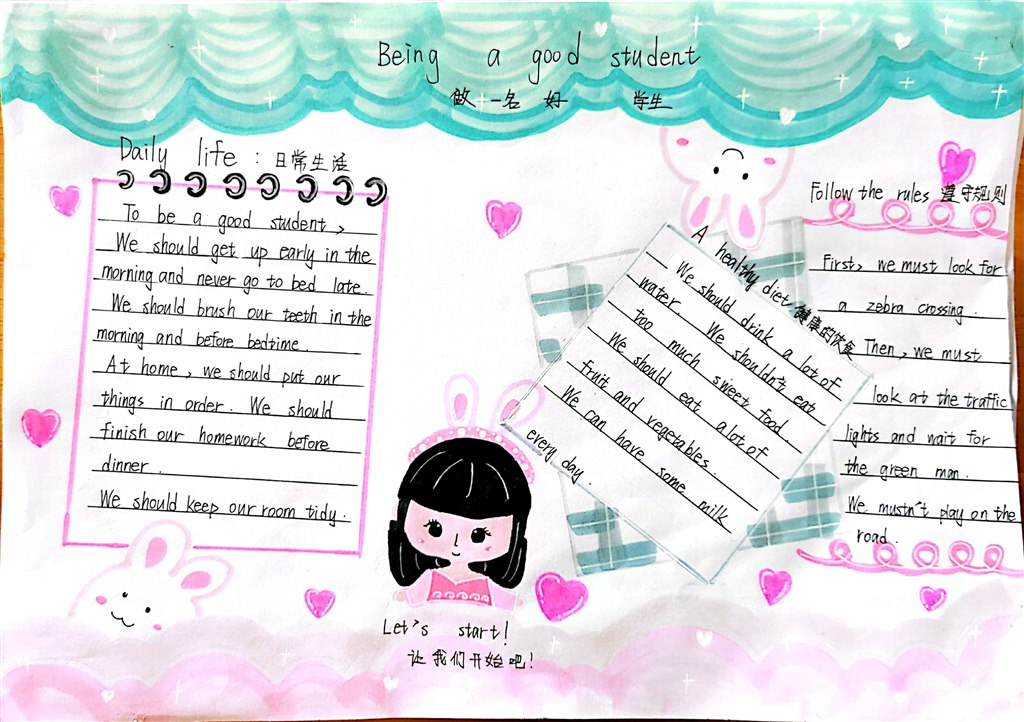 Being a good student
做一名 好 学生
Daily life：日常生活
To be a good student，
We should get up early in the
morning and never go to bed late.
We should brush our teeth in the
morning and before bedtime.
At home，we should put our
things in order. We should
finish our homework before
dinner.
We should keep our room tidy.
A healthy diet 健康的饮食
We should drink a lot of
water. We shouldn't eat
too much sweet food.
We should eat a lot of
fruit and vegetables.
We can have some milk
every day.
Follow the rules 遵守规则
First，we must look for
a zebra crossing.
Then，we must
look at the traffic
lights and wait for
the green man.
We mustn't play on the
road.
Let's start!
让我们开始吧！